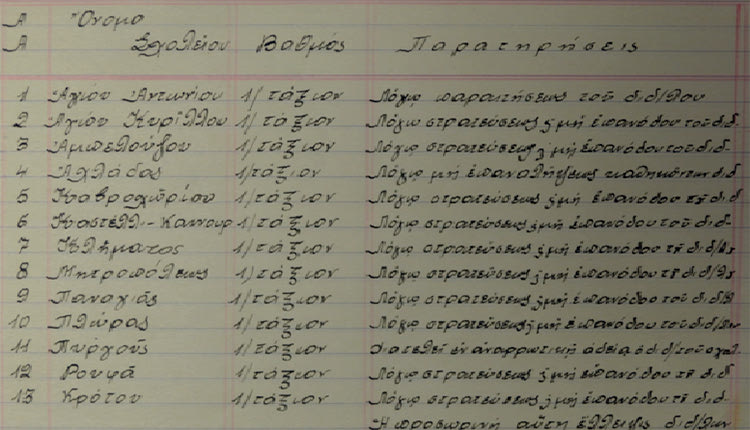 Α Ὄνομα
Α Σχολείου Βαθμός Παρατηρήσεις
1 Ἁγίου Ἀντωνίου 1/τάξιον Λόγῳ παραιτήσεως τοῦ διδ/λου
2 Ἁγίου Κυρίλλου 1/τάξιον Λόγῳ στρατεύσεως ἤ μή ἐπανόδου τοῦ διδ.
3 Ἀμπελούζου 1/τάξιον Λόγῳ στρατεύσεως ἤ μή ἐπανόδου τοῦ διδ.
4 Ἀχλάδας 1/τάξιον Λόγῳ μή ἐπαναλήψεως καθηκόντων διδ
5 Καβροχωρίου 1/τάξιον Λόγῳ στρατεύσεως ἤ μή ἐπανόδου τοῦ διδ
6 Καστέλλι-Καινουρ 1/τάξιον Λόγῳ στρατεύσεως ἤ μή ἐπανόδου τοῦ διδ.
7 Κλήματος 1/τάξιον Λόγῳ στρατεύσεως ἤ μή ἐπανόδου τοῦ διδ/λου
8 Μητροπόλεως 1/τάξιον Λόγῳ στρατεύσεως ἤ μή ἐπανόδου τοῦ διδ/λου
9 Παναγιᾶς 1/τάξιον Λόγῳ στρατεύσεως ἤ μή ἐπανόδου τοῦ διδ/λ
10 Πλώρας 1/τάξιον Λόγῳ στρατεύσεως ἤ μή ἐπανόδου τοῦ διδ/λου
11 Πυργοῦς 1/τάξιον Διατελεῖ ἐν ἀναρρωτικῇ ἀδείᾳ ὁ διδ/
12 Ρουφᾶ 1/τάξιον Λόγῳ στρατεύσεως ἤ μή ἐπανόδου τοῦ διδ
13 Κρότου 1/τάξιον Λόγῳ στρατεύσεως ἤ μή ἐπανόδου τοῦ διδ.
Ἡ προσωρινή αὕτη ἔλλειψις διδ/λων